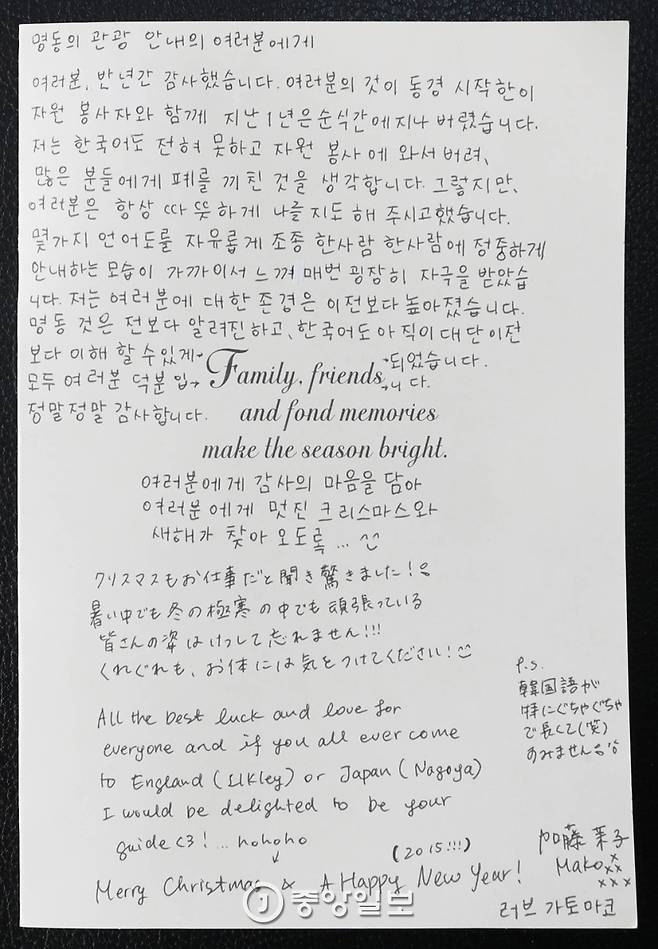 명동의 관광 안내의 여러분에게
여러분, 반년간 감사했습니다. 여러분의 것이 동경 시작한이
자원 봉사자와 함께 지난 1년은 순식간에 지나 버렸습니다.
저는 한국어도 전혀 못하고 자원 봉사에 와서 버려,
많은 분들에게 폐를 끼친 것을 생각합니다. 그렇지만,
여러분은 항상 따뜻하게 나를 지도 해 주시고했습니다.
몇가지 언어도를 자유롭게 조종 한사람 한사람에 정중하게
안내하는 모습이 가까이서 느껴 매번 굉장히 자극을 받았습
니다. 저는 여러분에 대한 존경은 이전보다 높아졌습니다.
명동 것은 전보다 알려진하고, 한국어도 아직이 대단 이전
보다 이해 할 수 있게→ 되었습니다.
모두 여러분 덕분 입→ →니다.
정말정말 감사합니다.
Family, friends
and fond memories
make the season bright.
여러분에게 감사의 마음을 담아
여러분에게 멋진 크리스마스와
새해가 찾아 오도록... ^^
クリスマスもお仕事だと聞き驚きました!
暑い中でも冬の極寒の中でも頑張っている
皆さんの姿はけっして忘れません!!!
くれぐれも、お体には気をつけてください!
p.s.
韓国語が
特にぐちゃぐちゃ
で長くて(笑)
すみません
All the best luck and love for
everyone and if you all ever come
to England (Ilkley) or Japan (Nagoya)
I would be delighted to be your
guide <3! ... hohoho
↓
Merry Christmas & A Happy New Year!
(2015!!!)
加藤 茉子
Mako x
xx
xxx
러브 가토마코
J 중앙일보